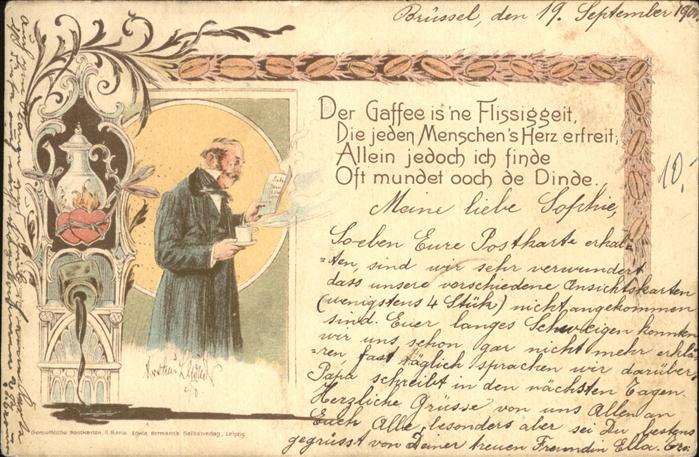 Brüssel, den 19. September
Der Gaffee is 'ne Flissiggeit,
Die jeden Menschen's Herz erfreit;
Allein jedoch ich finde
Oft mundet ooch de Dinde.
10.
Meine liebe Sophie,
Soeben Eure Postkarte erhal-
=ten, sind wir sehr verwundert
dass unsere verschiedene Ansichtskarten
(wenigstens 4 Stük) nicht angekommen
sind. Euer langes Schweigen konnten
wir uns schon gar nicht mehr erklä-
=ren, fast täglich sprachen wir darüber,
Papa schreibt in den nächsten Tagen.
Herzliche Grüsse von uns Allen an
Euch Alle, besonders aber sei Du bestens
gegrüsst von Deiner treuen Freundin Ella.
Gemüthliche Postkarten, II. Serie. Edwin Bormann's Selbstverlag, Leipzig.